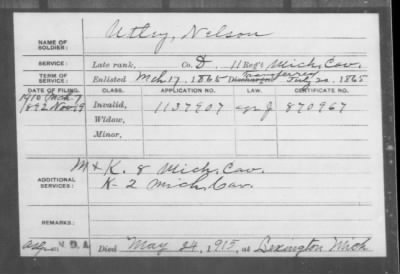 NAME OF SOLDIER: Utley, Nelson
SERVICE: Late rank, Co. D. 11 Reg't Mich. Cav.
TERM OF SERVICE: Enlisted Mch 17, 1865 Discharged transferred July 20, 1865
DATE OF FILING. CLASS. APPLICATION NO. LAW. CERTIFICATE NO.
1910 Mch 7
1892 Nov. 19 Invalid, 1137907 870967
Widow,
Minor,
M & K. 8 Mich. Cav.
ADDITIONAL SERVICES: K-2 Mich. Cav.
REMARKS:
Died May 24, 1915, at Lexington Mich